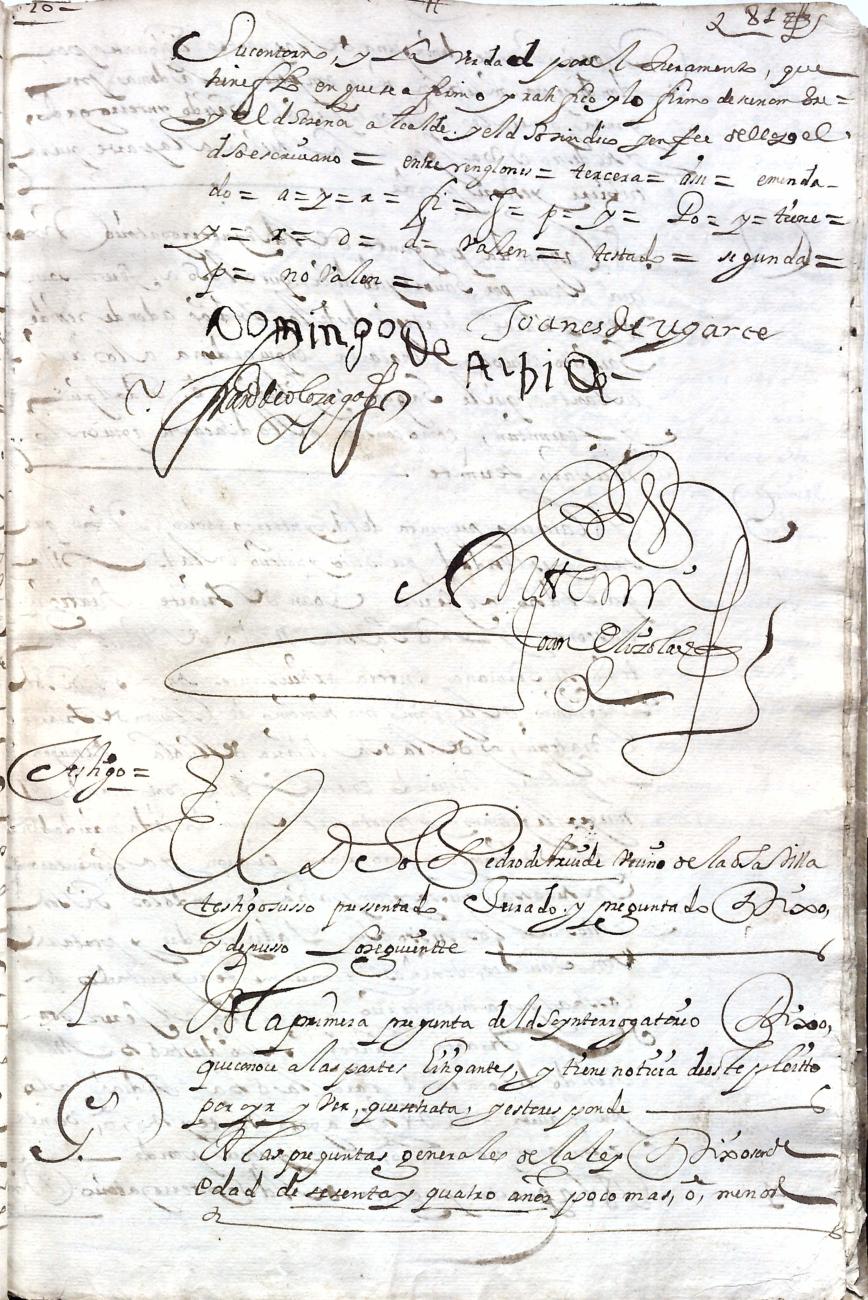 20
2 81
su contorno, y la verdad por el Juramento, que
tiene fho en que se afirmo y ratifico y lo firmo de su nombre =
y el dho serena alcalde y el dho sindico y en fee de ello yo el
dho escrivano = entre renglones = tercera = su = emenda-
do = a = y = x = fi = f = p = y = Po = y = tiene =
y = x = o = d = valen = testado = segunda =
p = no valen =
Joanes de ugarte
Domingo de Alpide
Ante mi
Joan
testigo =
El dho Pedro de Vecino de la dha Villa
testigo susso presentado Jurado y preguntado Dixo,
y depusso lo seguientte
1
A la primera pregunta del dho ynterrogatorio Dixo,
que conoce a las partes litigantes, y tiene noticia deeste pleitto
por oyr y ver, que se trata, y esto responde
G.
A las preguntas generales de la ley Dixo ser de
edad de sesenta y quatro años poco mas, o, menos